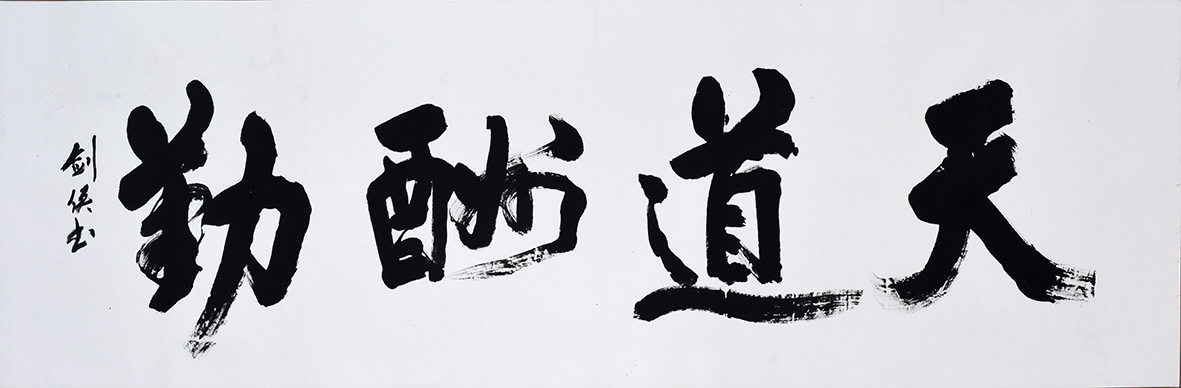 天道酬勤
剑侠书